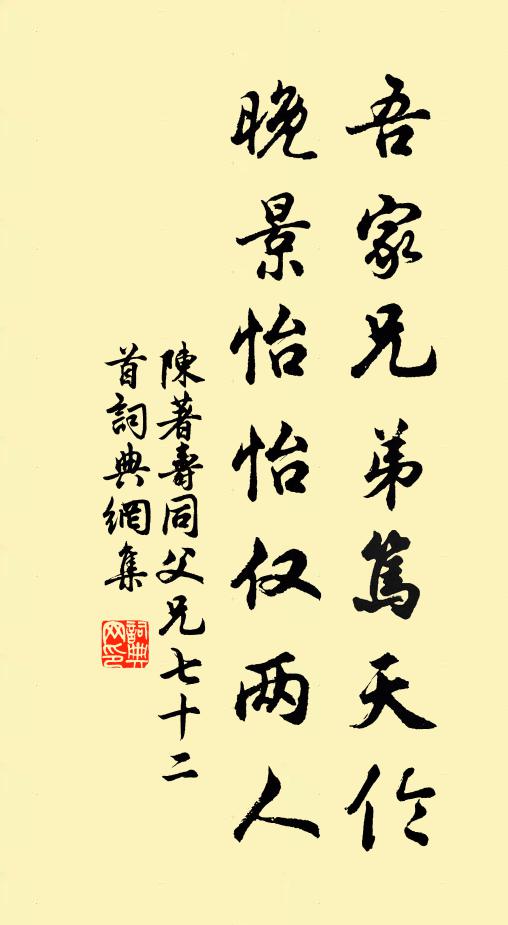 吾家兄弟篤天伦
晚景怡怡仅两人
陳著壽同父兄七十二
首詞典網集
詞典网印